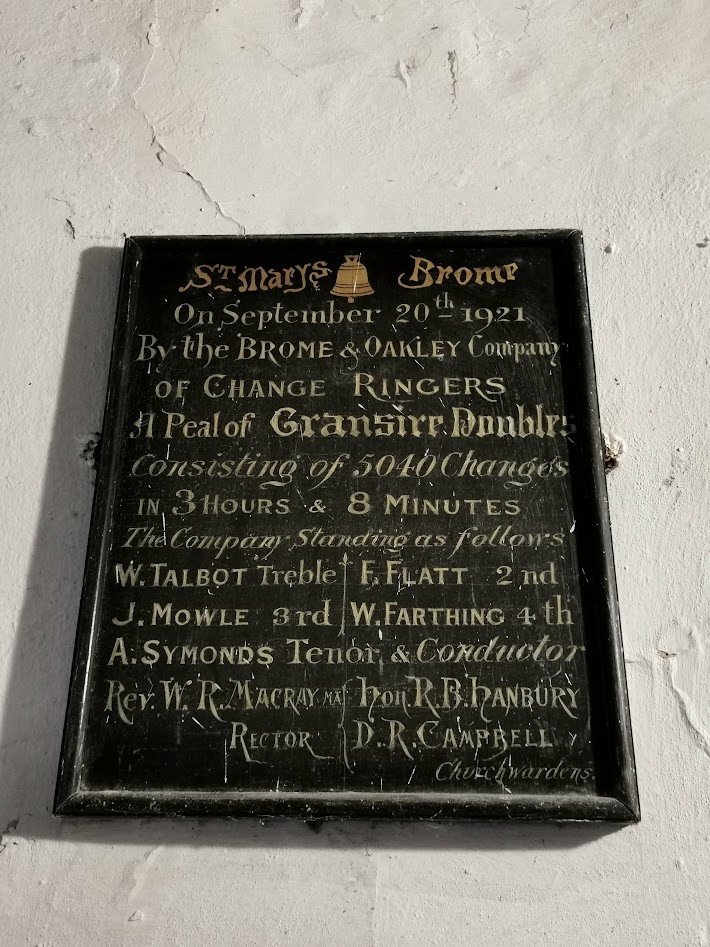 St Marys Brome
On September 20th 1921
By the BROME & OAKLEY Company
OF CHANGE RINGERS
A Peal of Gransire Doubles
Consisting of 5040 Changes
IN 3 HOURS & 8 MINUTES
The Company Standing as follows
W. TALBOT Treble F. FLATT 2nd
J. MOWLE 3rd W. FARTHING 4th
A. SYMONDS Tenor & Conductor
Rev. W. R. MACRAY MA Hon. R. B. HANBURY
RECTOR D. R. CAMPBELL
Churchwardens.